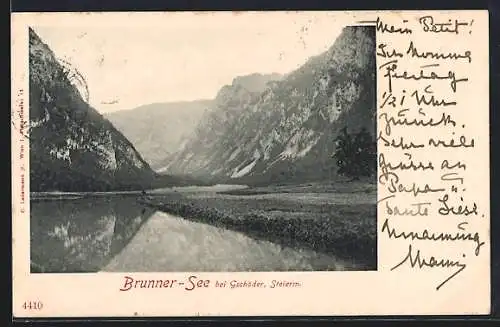 Mein Petit!
Komme
Freitag
½1 Uhr
zurück.
Sehr viele
Grüsse an
Papa u.
Tante Liesl.
Umarmung
Mami
C. Ledermann jr. Wien I
Brunner-See bei Gschöder, Steierm.
4410